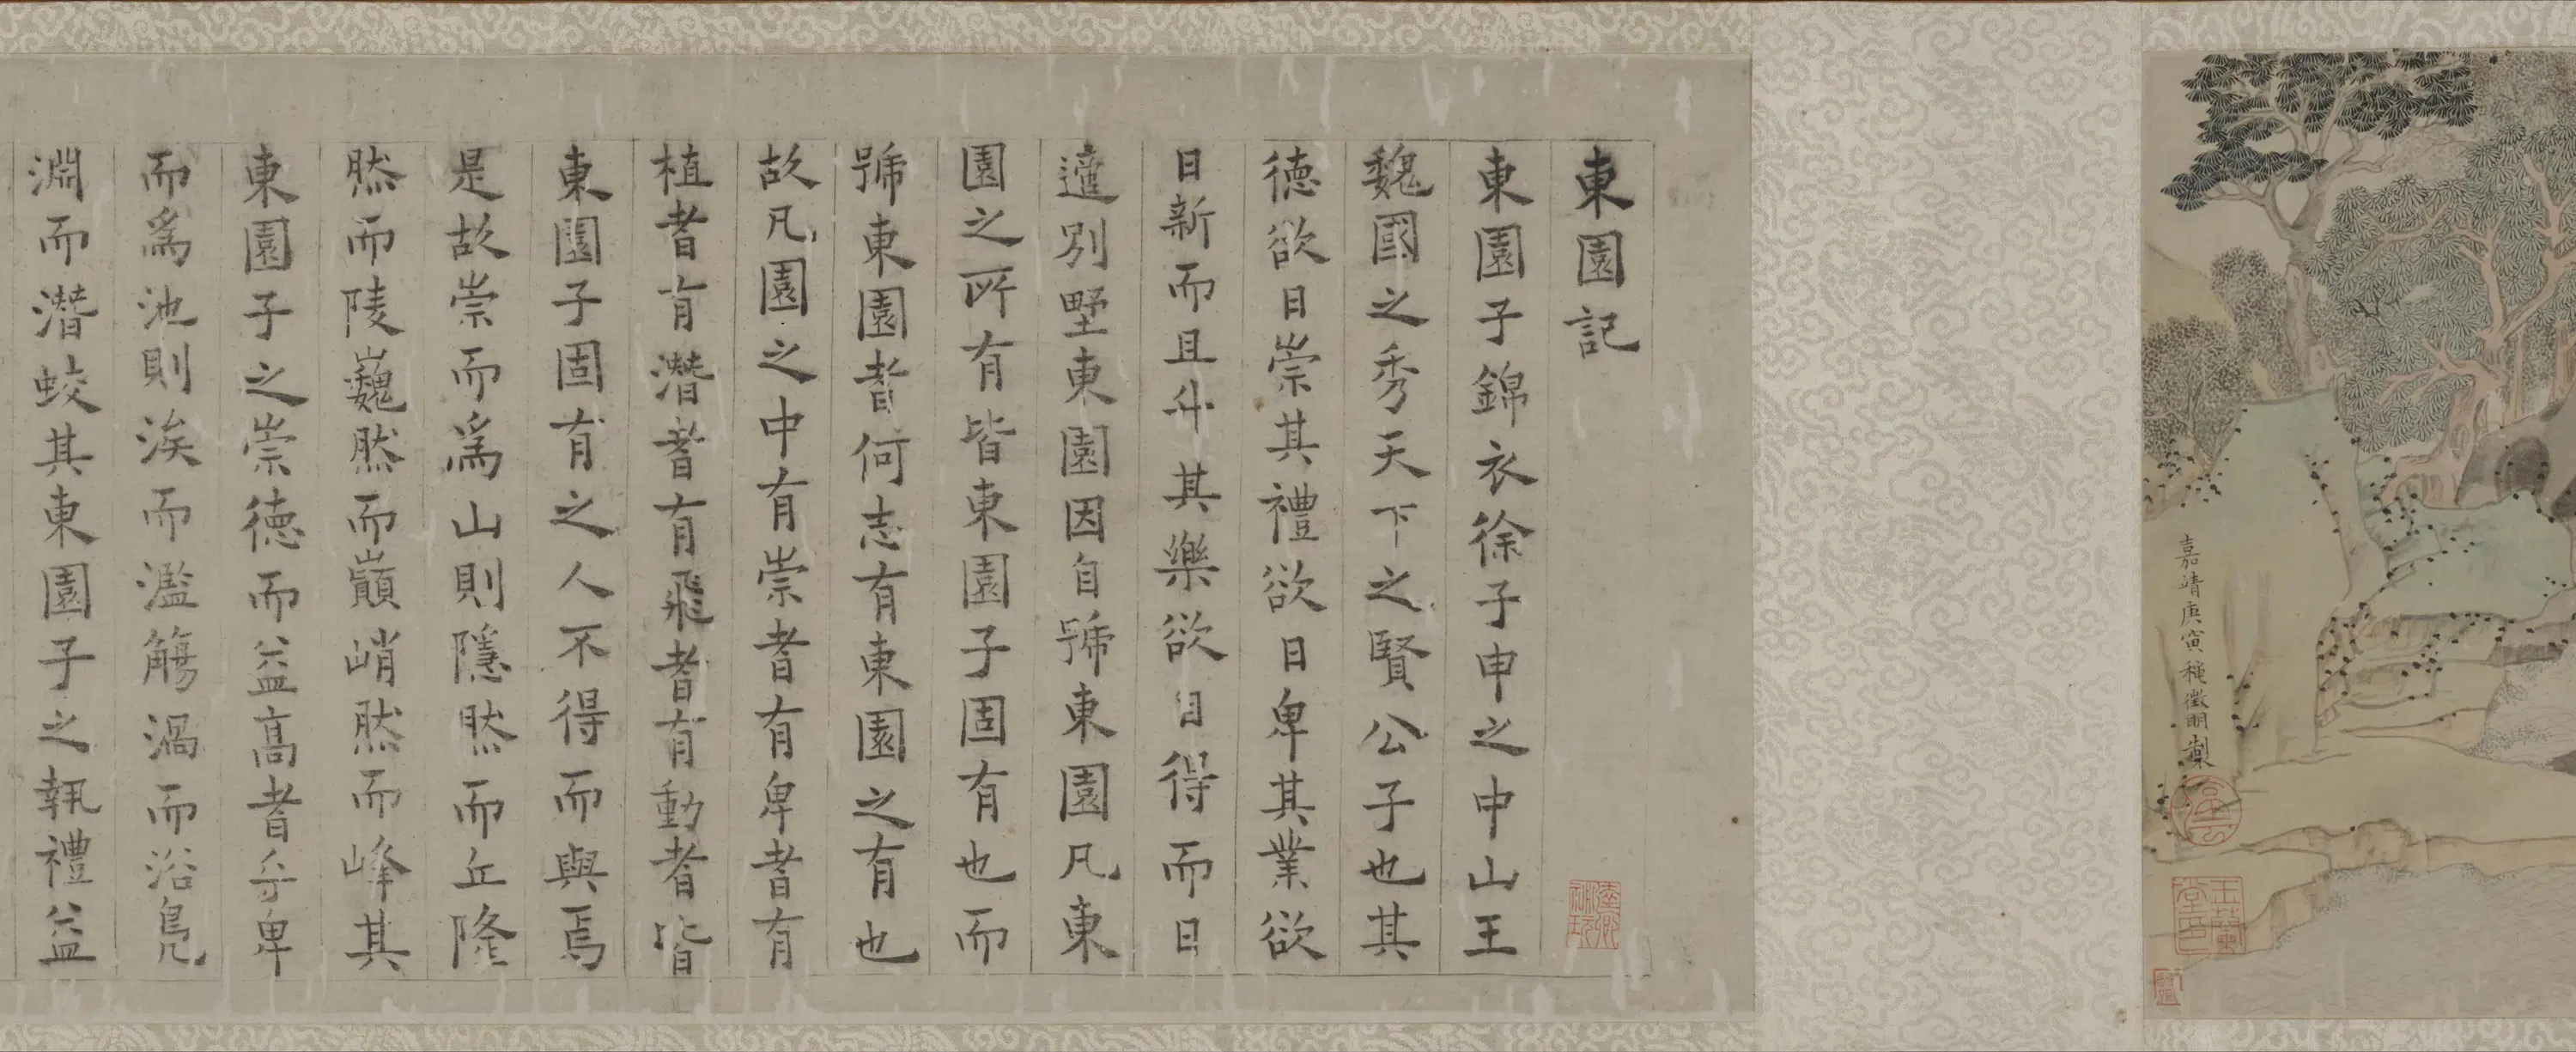 嘉靖庚寅秋徵明製
玉蘭堂印
東園記
東園子錦衣徐子申之中山王
魏國之秀天下之賢公子也其
德欲日崇其禮欲日卑其業欲
日新而且升其樂欲自得而日
適別墅東園因自號東園凡東
園之所有皆東園子固有也而
號東園者何志有東園之有也
故凡園之中有崇者有卑者有
植者有潛者有飛者有動者皆
東園子固有之人不得而與焉
是故崇而為山則隱然而丘隆
然而陵巍然而巔峭然而峰其
東園子之崇德而益高者乎卑
而為池則涘而濫觴渦而浴鳧
淵而潛蛟其東園子之執禮益